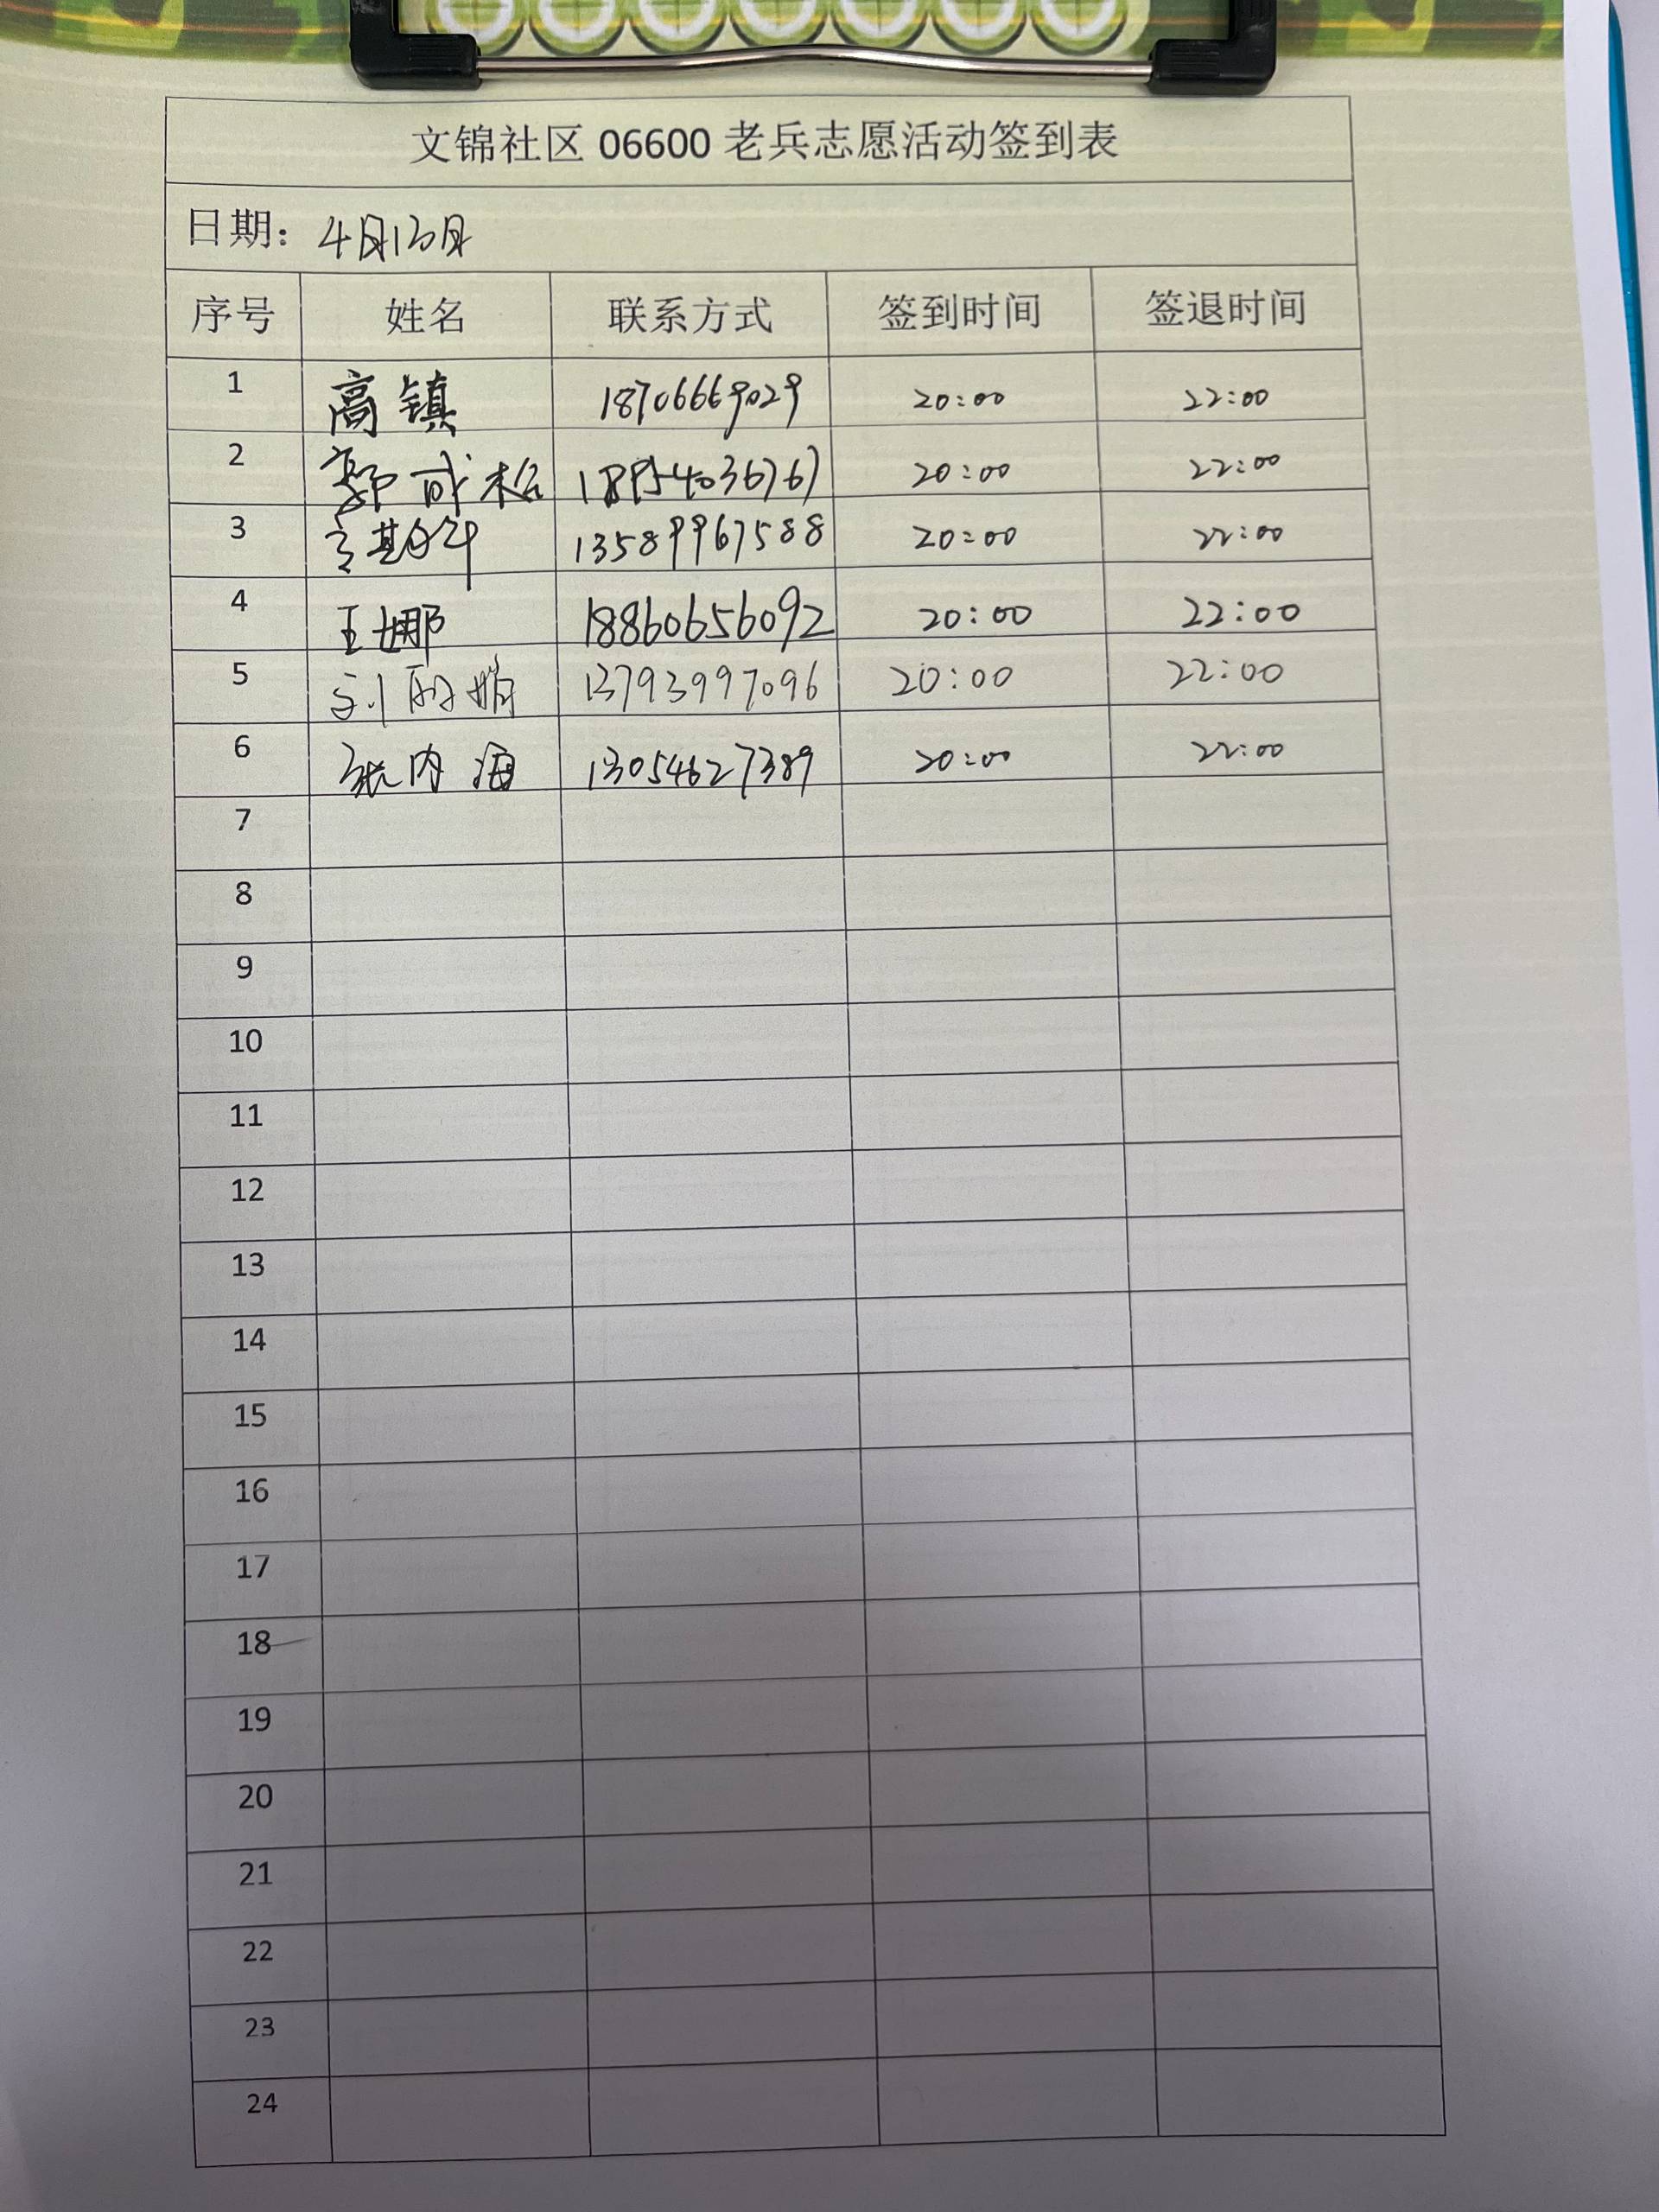 文锦社区 06600 老兵志愿活动签到表
日期：4月13日
序号 姓名 联系方式 签到时间 签退时间
1 高镇 18706669029 20:00 22:00
2 郭成松 18954036767 20:00 22:00
3 13589967588 20:00 22:00
4 王娜 18860656092 20:00 22:00
5 刘娟 13793997096 20:00 22:00
6 张内海 13054627389 20:00 22:00
7
8
9
10
11
12
13
14
15
16
17
18
19
20
21
22
23
24